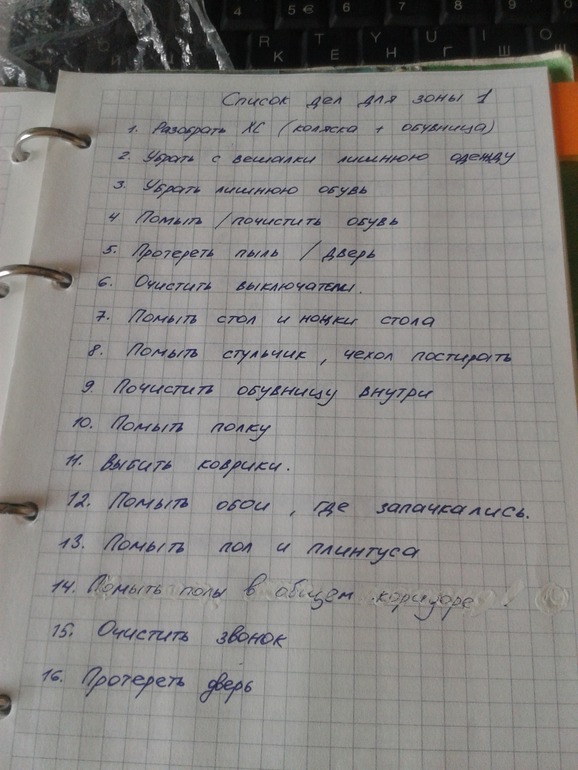 4 5 € 6 7 8 9 0
R T Y U I
К Е Н Г Ш
Список дел для зоны 1
1. Разобрать ХС (коляска + обувница)
2. Убрать с вешалки лишнюю одежду
3. Убрать лишнюю обувь
4 Помыть / почистить обувь
5. Протереть пыль / дверь
6. Очистить выключатели.
7. Помыть стол и ножки стола
8. Помыть стульчик, чехол постирать
9. Почистить обувницу внутри
10. Помыть полку
11. Выбить коврики.
12. Помыть обои, где запачкались.
13. Помыть пол и плинтуса
14. Помыть полы в общем коридоре.
15. Очистить звонок
16. Протереть дверь